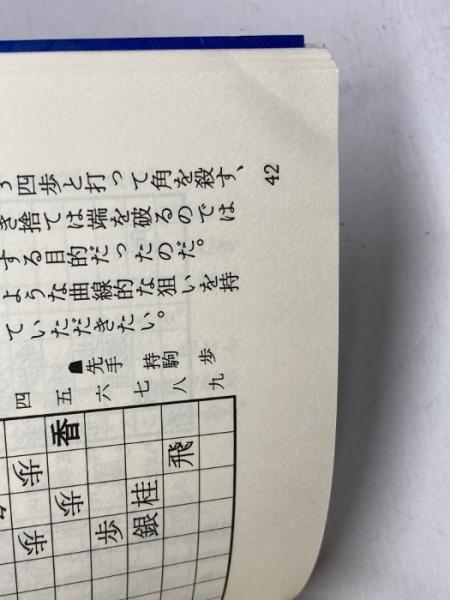 四歩と打って角を殺す、
き捨ては端を破るのでは
する目的だったのだ。
ような曲線的な狙いを持
ていただきたい。
42
☗先手 持駒 歩
四五六七八九
香
歩飛
歩桂
歩歩銀